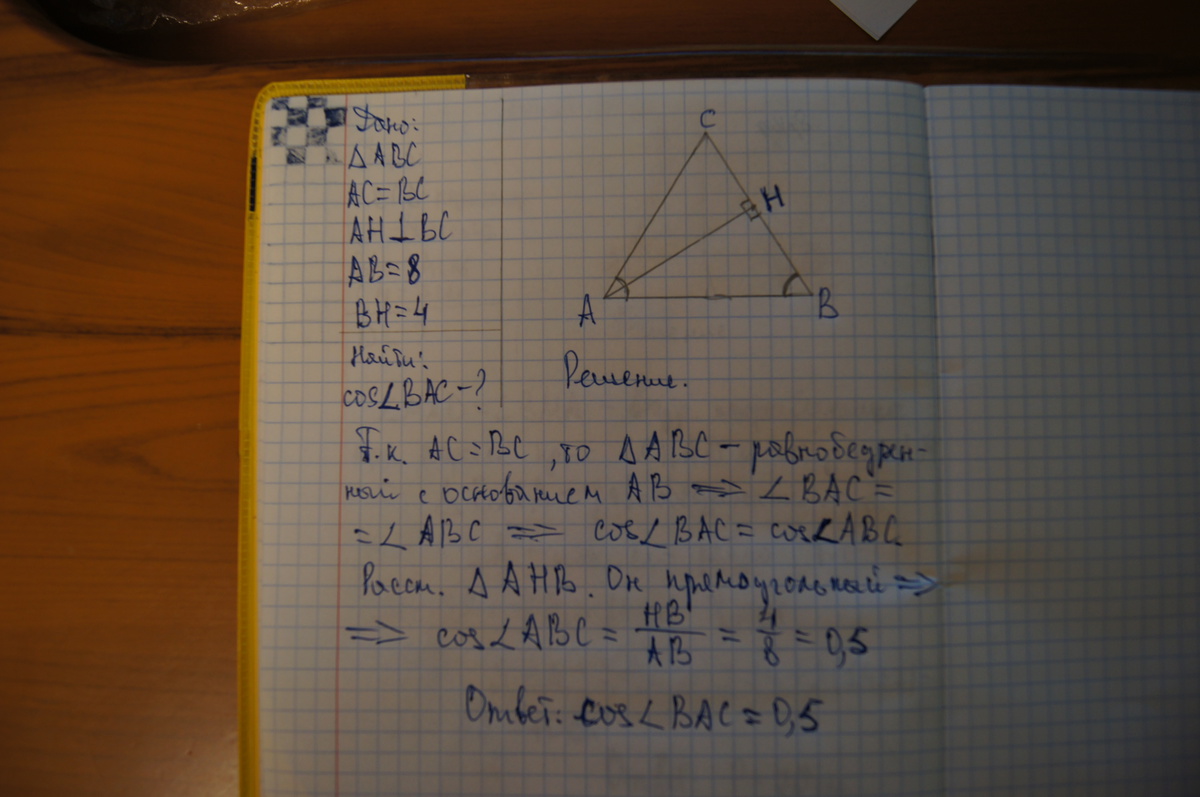 Дано:
△ABC
AC=BC
AH⊥BC
AB=8
BH=4
Найти:
cos∠BAC-?
C
H
A
B
Решение.
Т.к. AC=BC, то △ABC - равнобедрен-
ный с основанием AB ⟹ ∠BAC=
=∠ABC ⟹ cos∠BAC=cos∠ABC.
Рассм. △AHB. Он прямоугольный ⟹
⟹ cos∠ABC = HB/AB = 4/8 = 0,5
Ответ: cos∠BAC=0,5